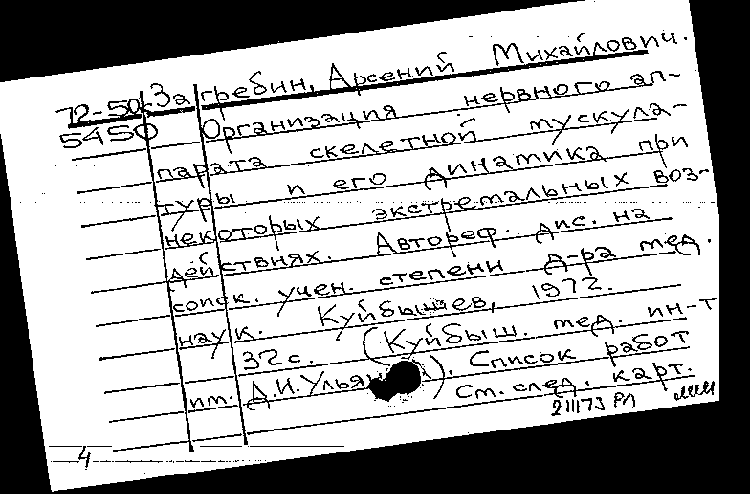 72-50к Загребин, Арсений Михайлович.
5450 Организация нервного ап-
парата скелетной мускула-
туры и его динамика при
некоторых экстремальных воз-
действиях. Автореф. дис. на
соиск. учен. степени д-ра мед.
наук. Куйбышев, 1972.
32 с. (Куйбыш. мед. ин-т
им. Д.И. Улья). Список работ
См. след. карт.
211173 РЛ
4